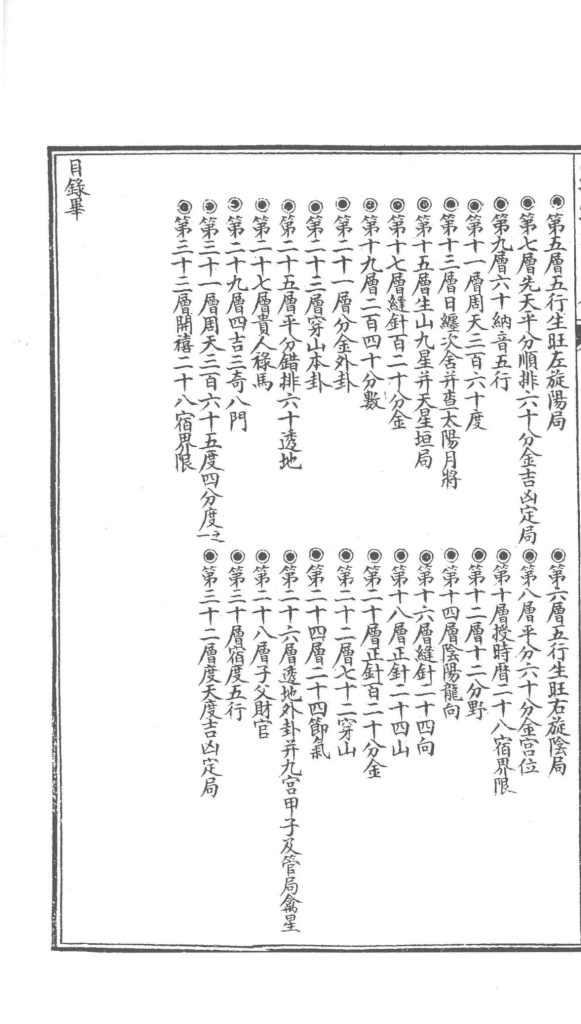 第五層五行生旺左旋陽局
第六層五行生旺右旋陰局
第七層先天平分順排六十分金吉凶定局
第八層平分六十分金宮位
第九層六十納音五行
第十層授時曆二十八宿界限
第十一層周天三百六十度
第十二層十二分野
第十三層日纏次舍并查太陽月將
第十四層陰陽龍向
第十五層生山九星并天星垣局
第十六層縫針二十四向
第十七層縫針百二十分金
第十八層正針二十四山
第十九層二百四十分數
第二十層正針百二十分金
第二十一層分金外卦
第二十二層七十二穿山
第二十三層穿山本卦
第二十四層二十四節氣
第二十五層平分錯排六十透地
第二十六層透地外卦并九宮甲子及管局禽星
第二十七層貴人祿馬
第二十八層子父財官
第二十九層四吉三奇八門
第三十層宿度五行
第三十一層周天三百六十五度四分度之一
第三十二層度天度吉凶定局
第三十三層開禧二十八宿界限
目錄畢